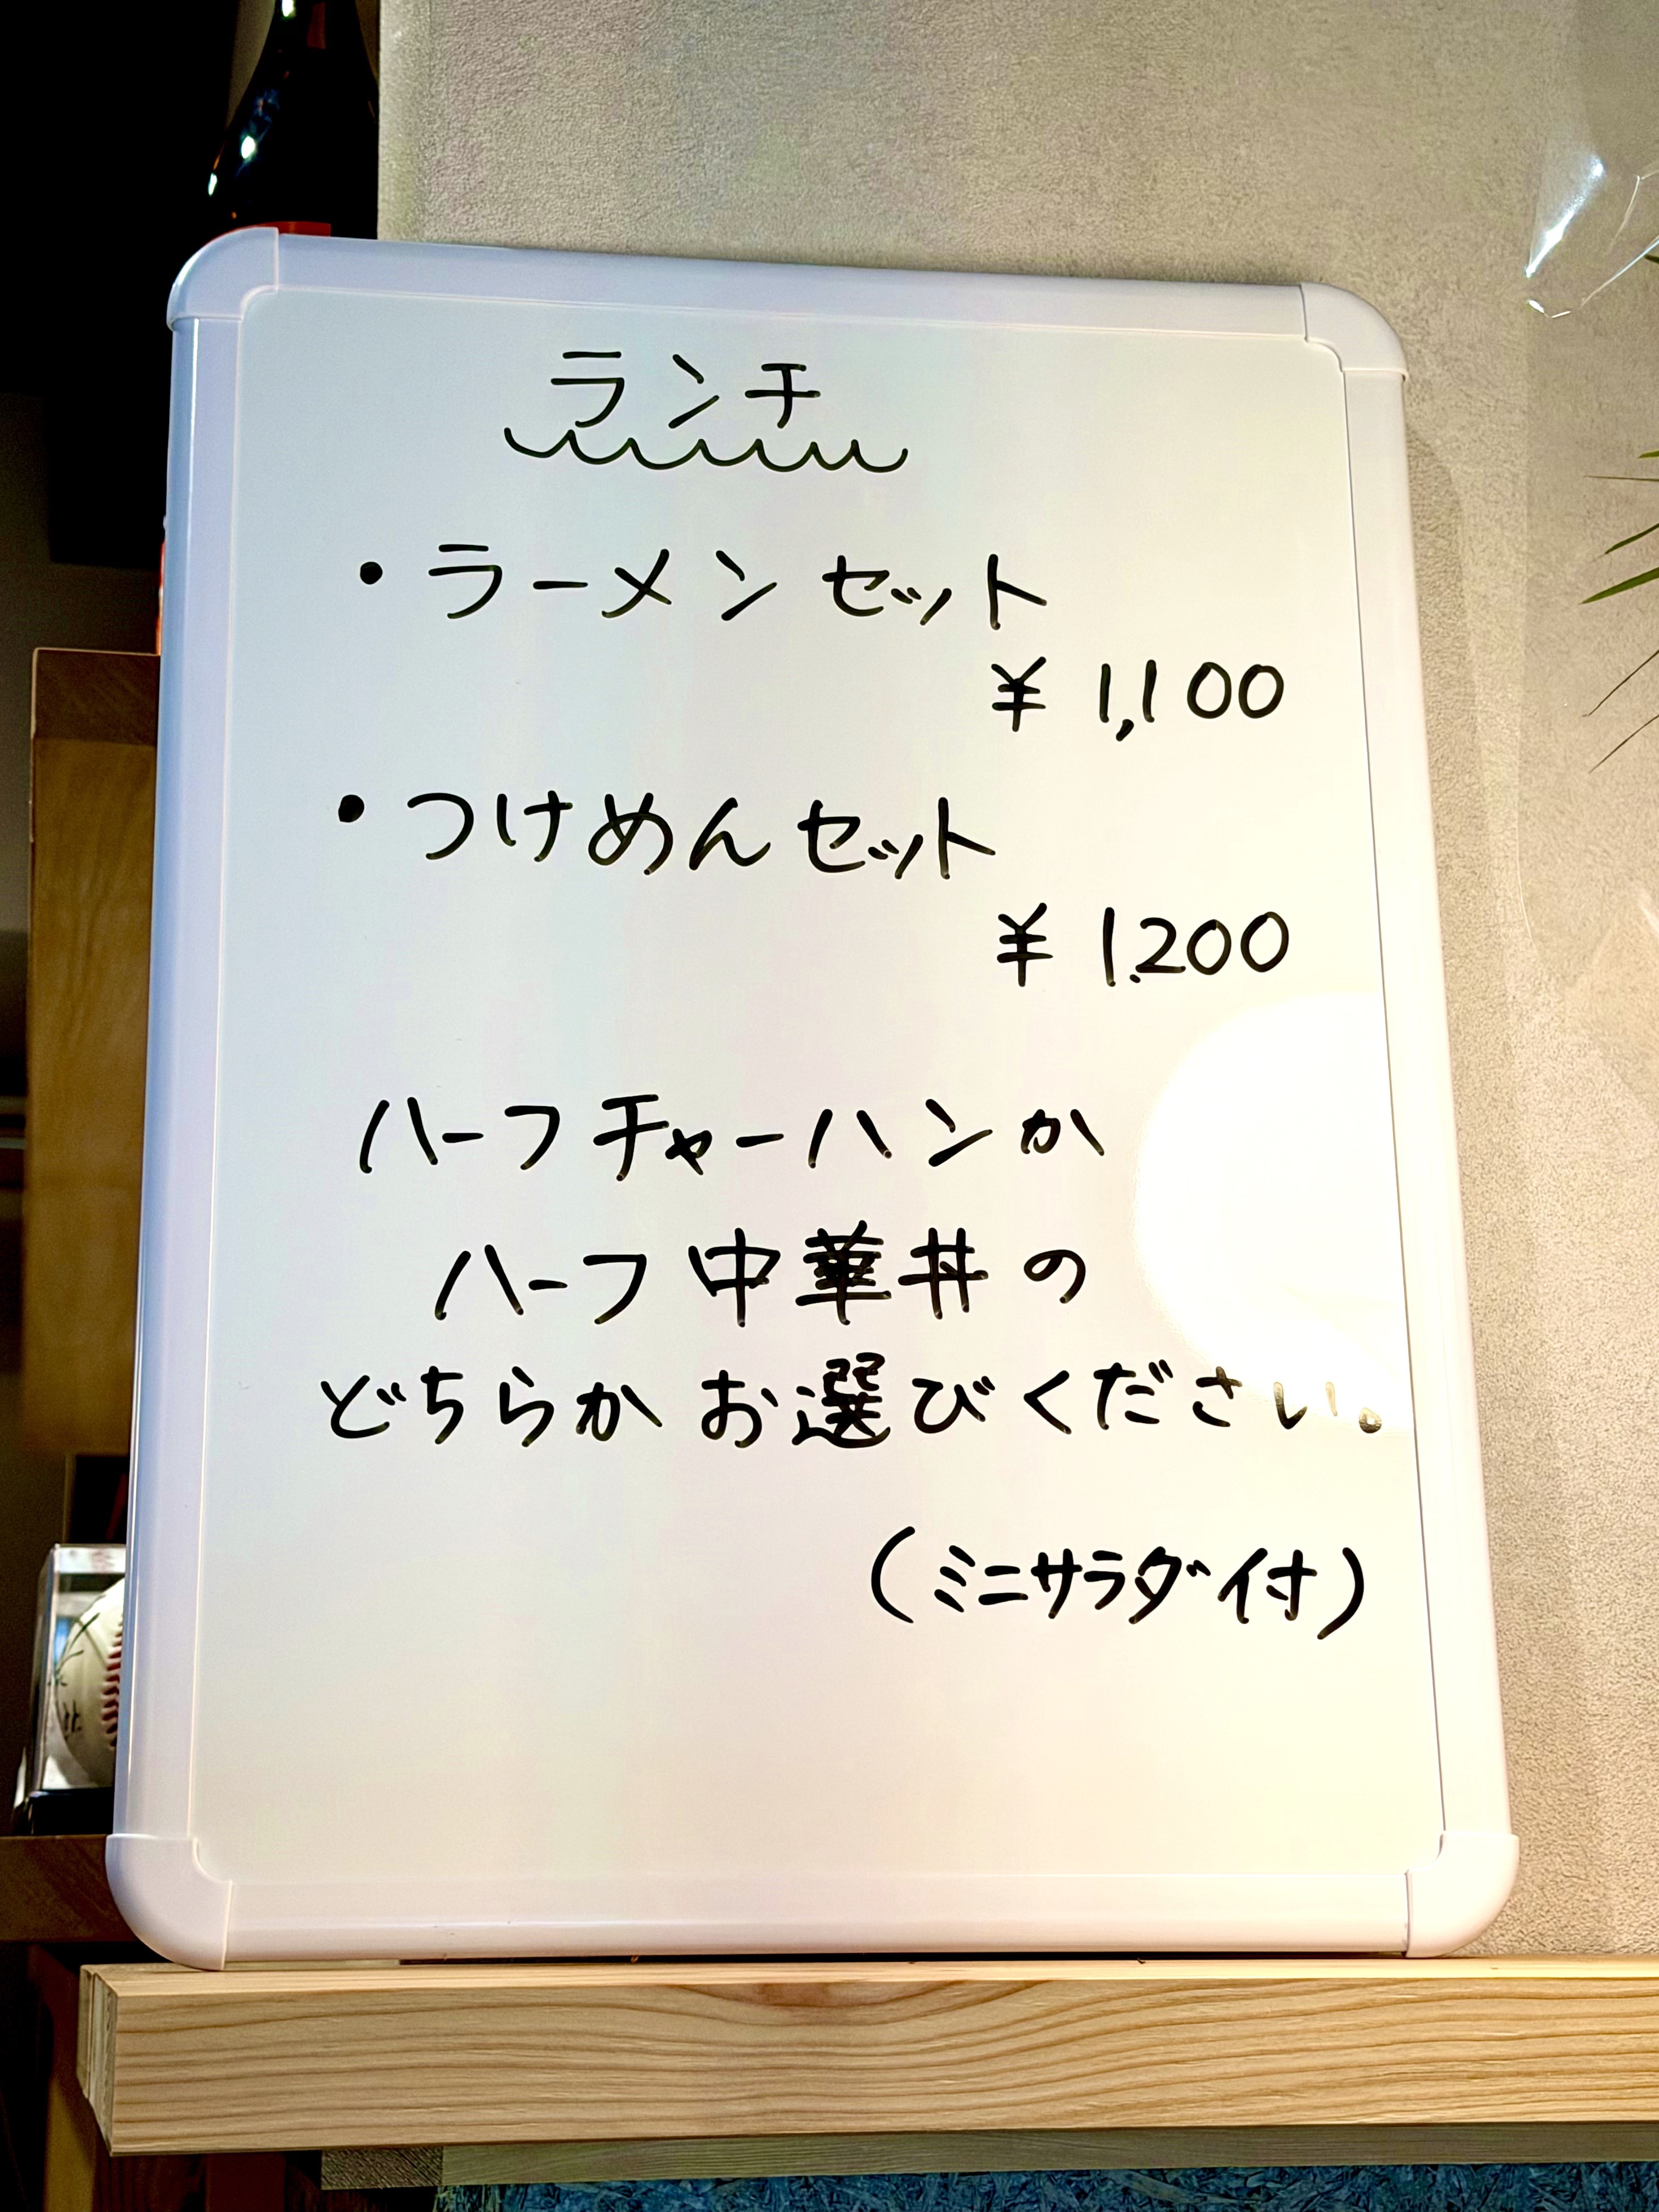 ランチ
・ラーメンセット
¥1,100
・つけめんセット
¥1.200
ハーフチャーハンか
ハーフ中華丼の
どちらかお選びください。
(ミニサラダ付)